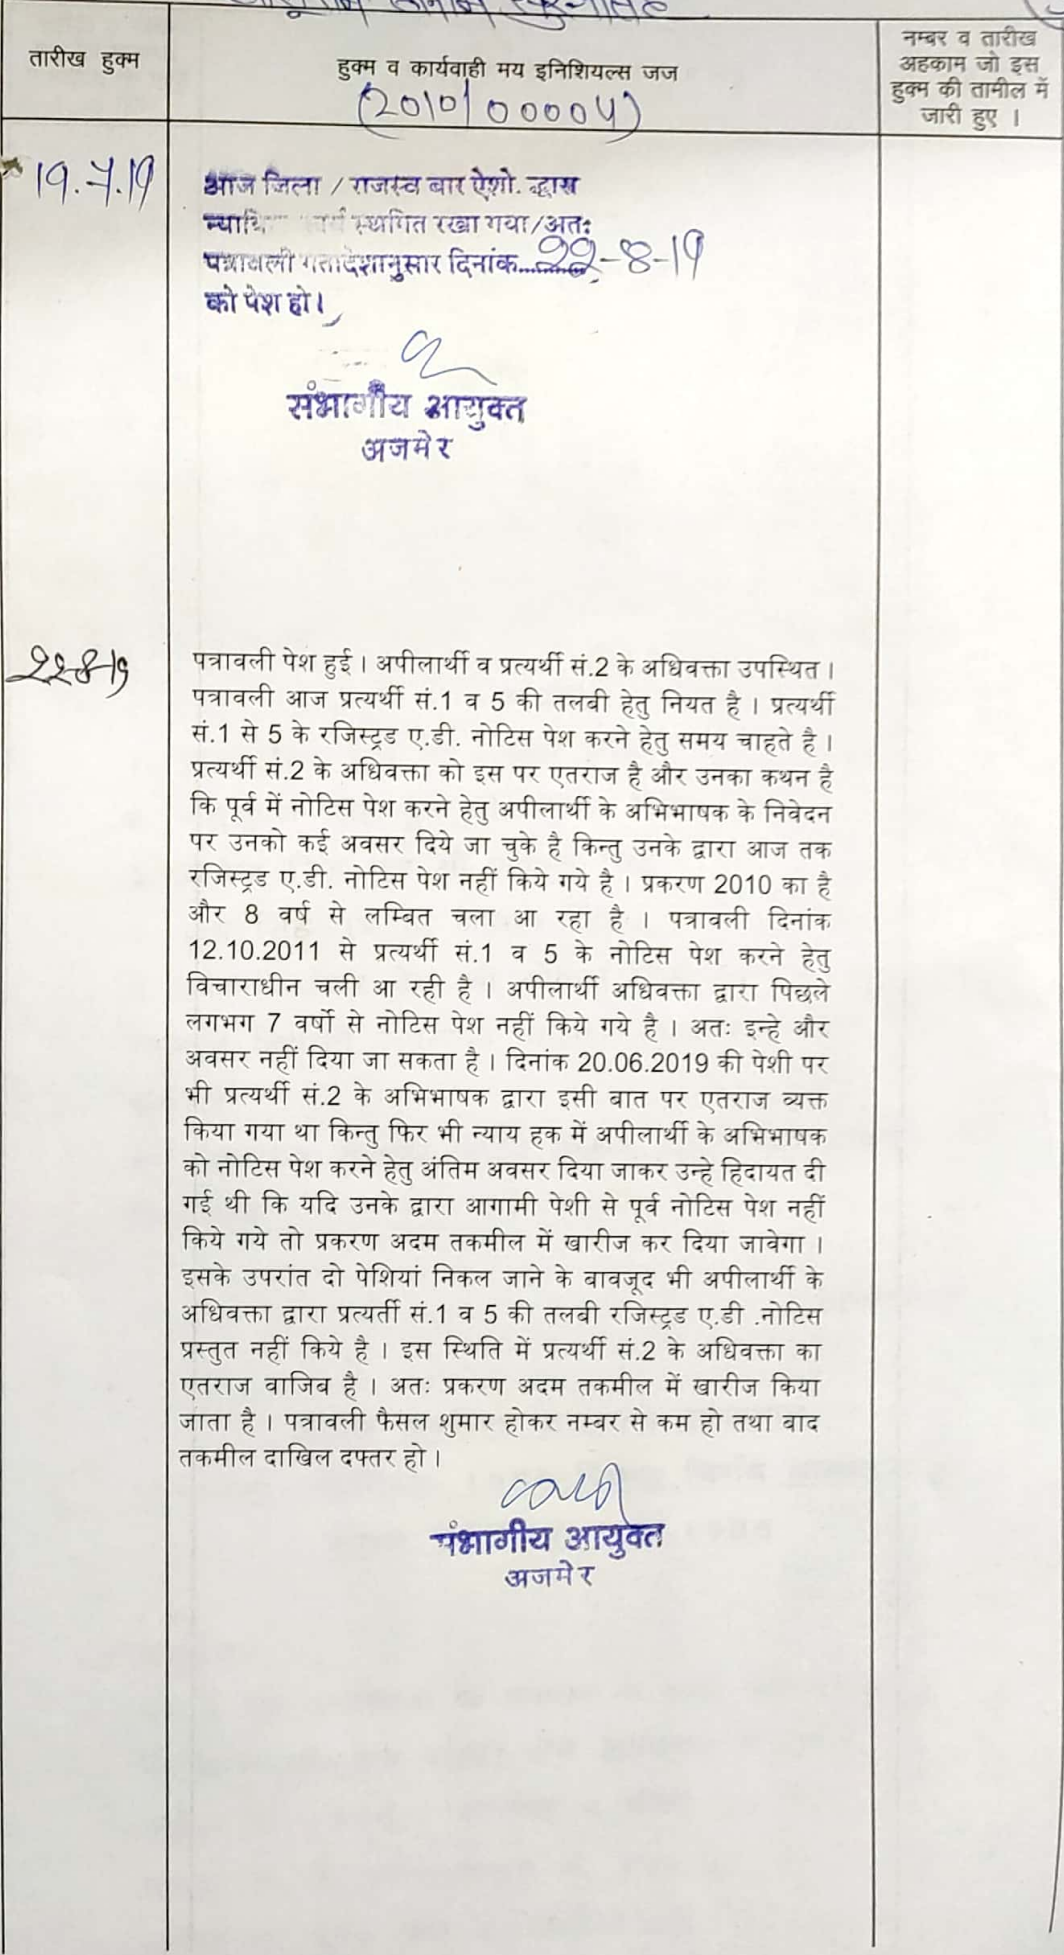 तारीख हुक्म
हुक्म व कार्यवाही मय इनिशियल्स जज
(2010/00004)
नम्बर व तारीख
अहकाम जो इस
हुक्म की तामील में
जारी हुए ।
19.7.19
आज जिला / राजस्व बार ऐशो. द्धारा
स्थगित रखा गया/अतः
पत्रावली गतादेशानुसार दिनांक......22-8-19
को पेश हो।
संभागीय आयुक्त
अजमेर
22-8-19
पत्रावली पेश हुई । अपीलार्थी व प्रत्यर्थी सं.2 के अधिवक्ता उपस्थित ।
पत्रावली आज प्रत्यर्थी सं.1 व 5 की तलबी हेतु नियत है । प्रत्यर्थी
सं.1 से 5 के रजिस्ट्रड ए.डी. नोटिस पेश करने हेतु समय चाहते है ।
प्रत्यर्थी सं.2 के अधिवक्ता को इस पर एतराज है और उनका कथन है
कि पूर्व में नोटिस पेश करने हेतु अपीलार्थी के अभिभाषक के निवेदन
पर उनको कई अवसर दिये जा चुके है किन्तु उनके द्वारा आज तक
रजिस्ट्रड ए.डी. नोटिस पेश नहीं किये गये है । प्रकरण 2010 का है
और 8 वर्ष से लम्बित चला आ रहा है । पत्रावली दिनांक
12.10.2011 से प्रत्यर्थी सं.1 व 5 के नोटिस पेश करने हेतु
विचाराधीन चली आ रही है । अपीलार्थी अधिवक्ता द्वारा पिछले
लगभग 7 वर्षो से नोटिस पेश नहीं किये गये है । अतः इन्हे और
अवसर नहीं दिया जा सकता है । दिनांक 20.06.2019 की पेशी पर
भी प्रत्यर्थी सं.2 के अभिभाषक द्वारा इसी बात पर एतराज व्यक्त
किया गया था किन्तु फिर भी न्याय हक में अपीलार्थी के अभिभाषक
को नोटिस पेश करने हेतु अंतिम अवसर दिया जाकर उन्हे हिदायत दी
गई थी कि यदि उनके द्वारा आगामी पेशी से पूर्व नोटिस पेश नहीं
किये गये तो प्रकरण अदम तकमील में खारीज कर दिया जावेगा ।
इसके उपरांत दो पेशियां निकल जाने के बावजूद भी अपीलार्थी के
अधिवक्ता द्वारा प्रत्यर्ती सं.1 व 5 की तलबी रजिस्ट्रड ए.डी .नोटिस
प्रस्तुत नहीं किये है । इस स्थिति में प्रत्यर्थी सं.2 के अधिवक्ता का
एतराज वाजिब है । अतः प्रकरण अदम तकमील में खारीज किया
जाता है । पत्रावली फैसल शुमार होकर नम्बर से कम हो तथा बाद
तकमील दाखिल दफ्तर हो ।
संभागीय आयुक्त
अजमेर